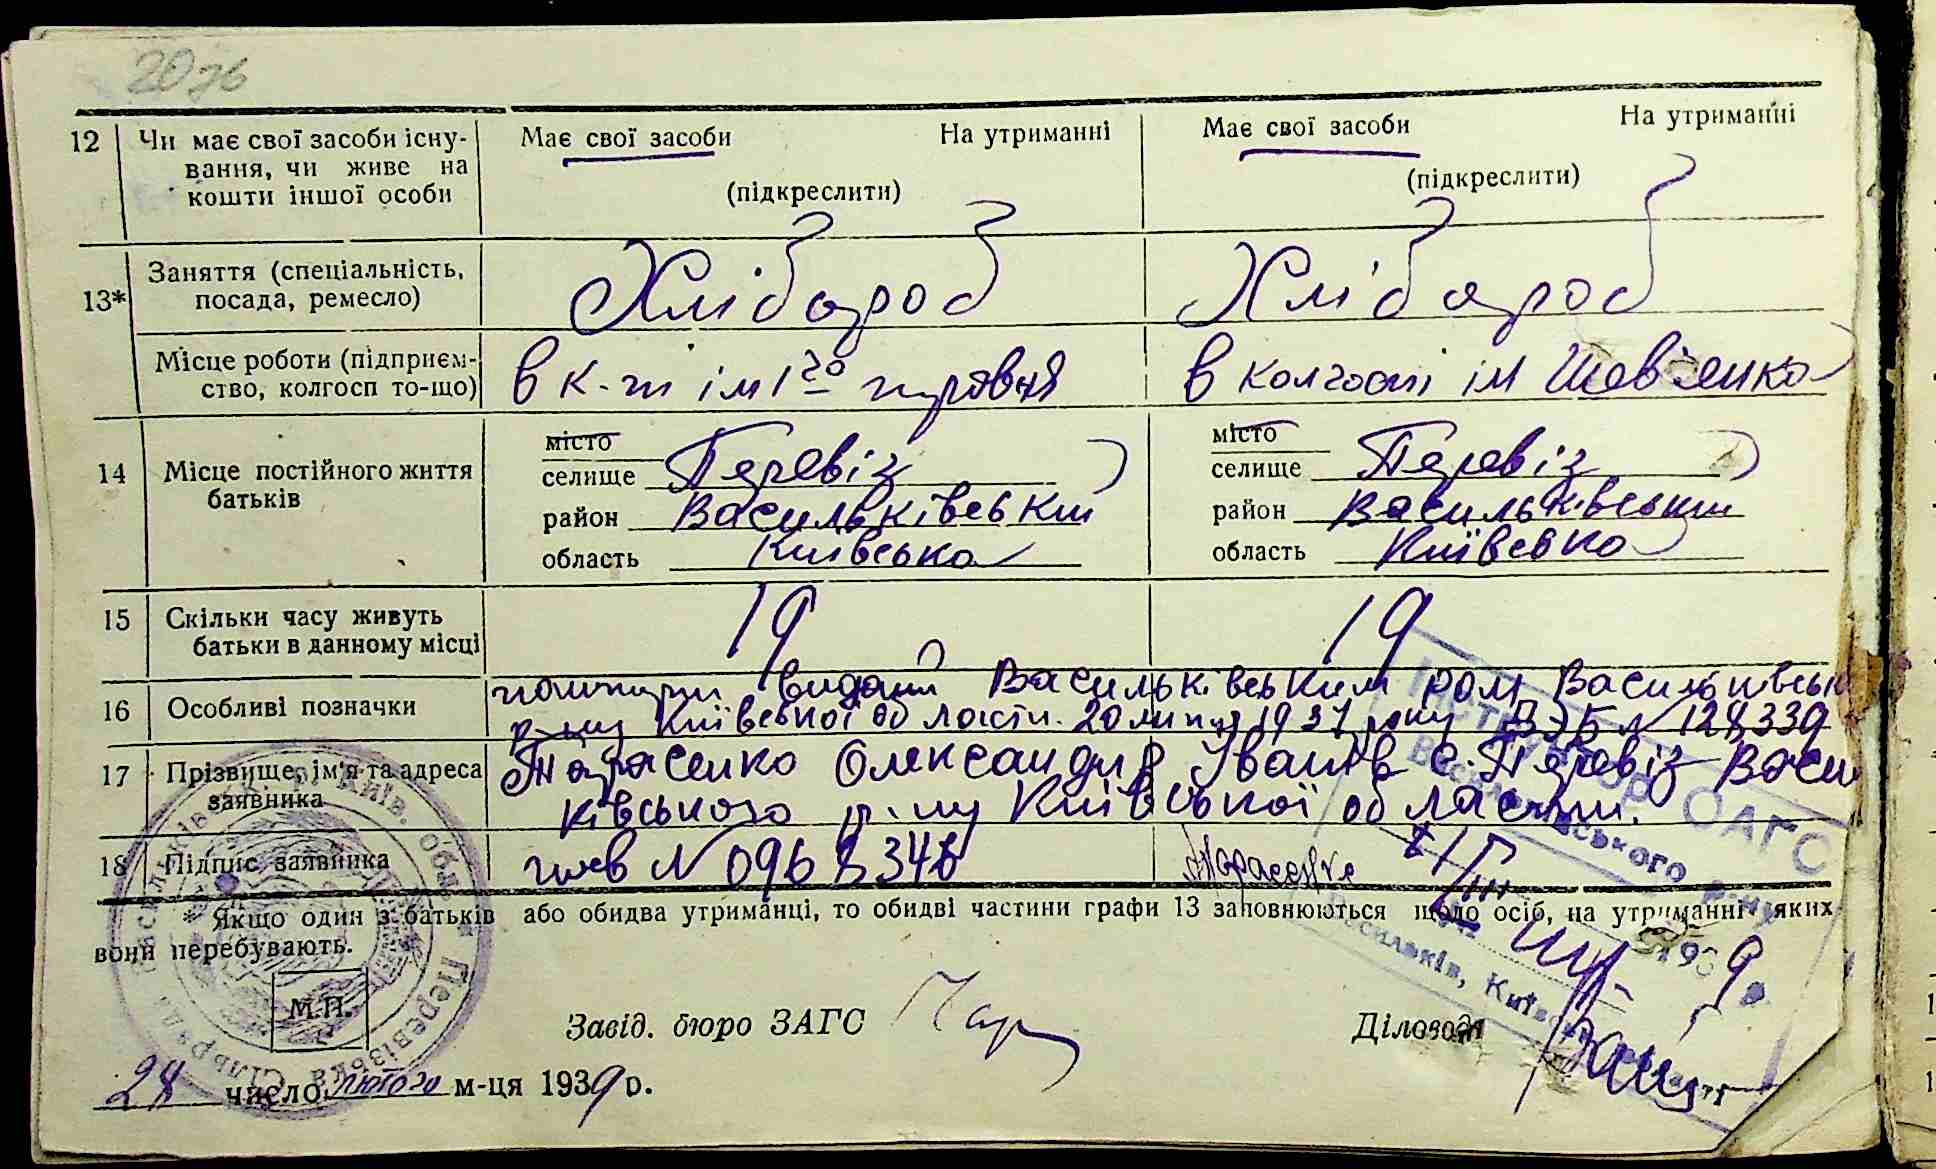 20 зв
12 Чи має свої засоби існу- Має свої засоби На утриманні Має свої засоби На утриманні
вання, чи живе на
кошти іншої особи (підкреслити) (підкреслити)
13* Заняття (спеціальність, посада, ремесло) Хлібороб Хлібороб
Місце роботи (підприєм- в к-пі ім 1го травня в колгоспі ім Шевченко
ство, колгосп то-що)
14 Місце постійного життя батьків
місто місто
селище Перевіз селище Перевіз
район Васильківський район Васильківський
область Київська область Київська
15 Скільки часу живуть 19 19
батьки в данному місці
16 Особливі позначки видані Васильківським Васильківськ
р-ну Київської області 20 липня 1937 року №
17 Прізвище, ім'я та адреса заявника Тарасенко Олександр Іванів с. Перевіз Васи
ківського р-ну Київської області.
18 Підпис заявника № Тарасенко
* Якщо один з батьків або обидва утриманці, то обидві частини графи 13 заповнюються щодо осіб, на утриманні яких
вони перебувають.
Інструктор ОАГС
Васильківського р-ну
193 9.
м. Васильків, Київської
Перевізька Сільрада Васильківськ. р. Київ. Обл.
М.П.
Завід. бюро ЗАГС Діловод
28 число лютого м-ця 1939 р.